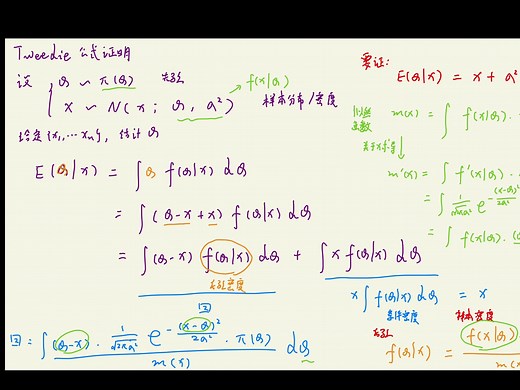 Tweedie 公式证明
设 { θ ~ π(θ) 先验
x ~ N(x; θ, σ²) 样本分布/密度
f(x|θ)
给定{x₁,…xₙ}, 估计 θ
E(θ|x) = ∫ θ f(θ|x) dθ
= ∫ (θ-x+x) f(θ|x) dθ
= ∫ (θ-x) f(θ|x) dθ + ∫ x f(θ|x) dθ
x ∫ f(θ|x) dθ = x
= ∫ (θ-x) · 1/√(2πσ²) e^{-(x-θ)²/2σ²} · π(θ) / m(x) dθ
要证:
E(θ|x) = x + σ²
m(x) = ∫ f(x|θ) ·
关于x求导
m'(x) = ∫ f'(x|θ) ·
= ∫ 1/√(2πσ²) e^{-(x-θ)²/2σ²}
= ∫ f(x|θ) · (θ
样本密度
f(θ|x) = f(x|θ) / m(x)